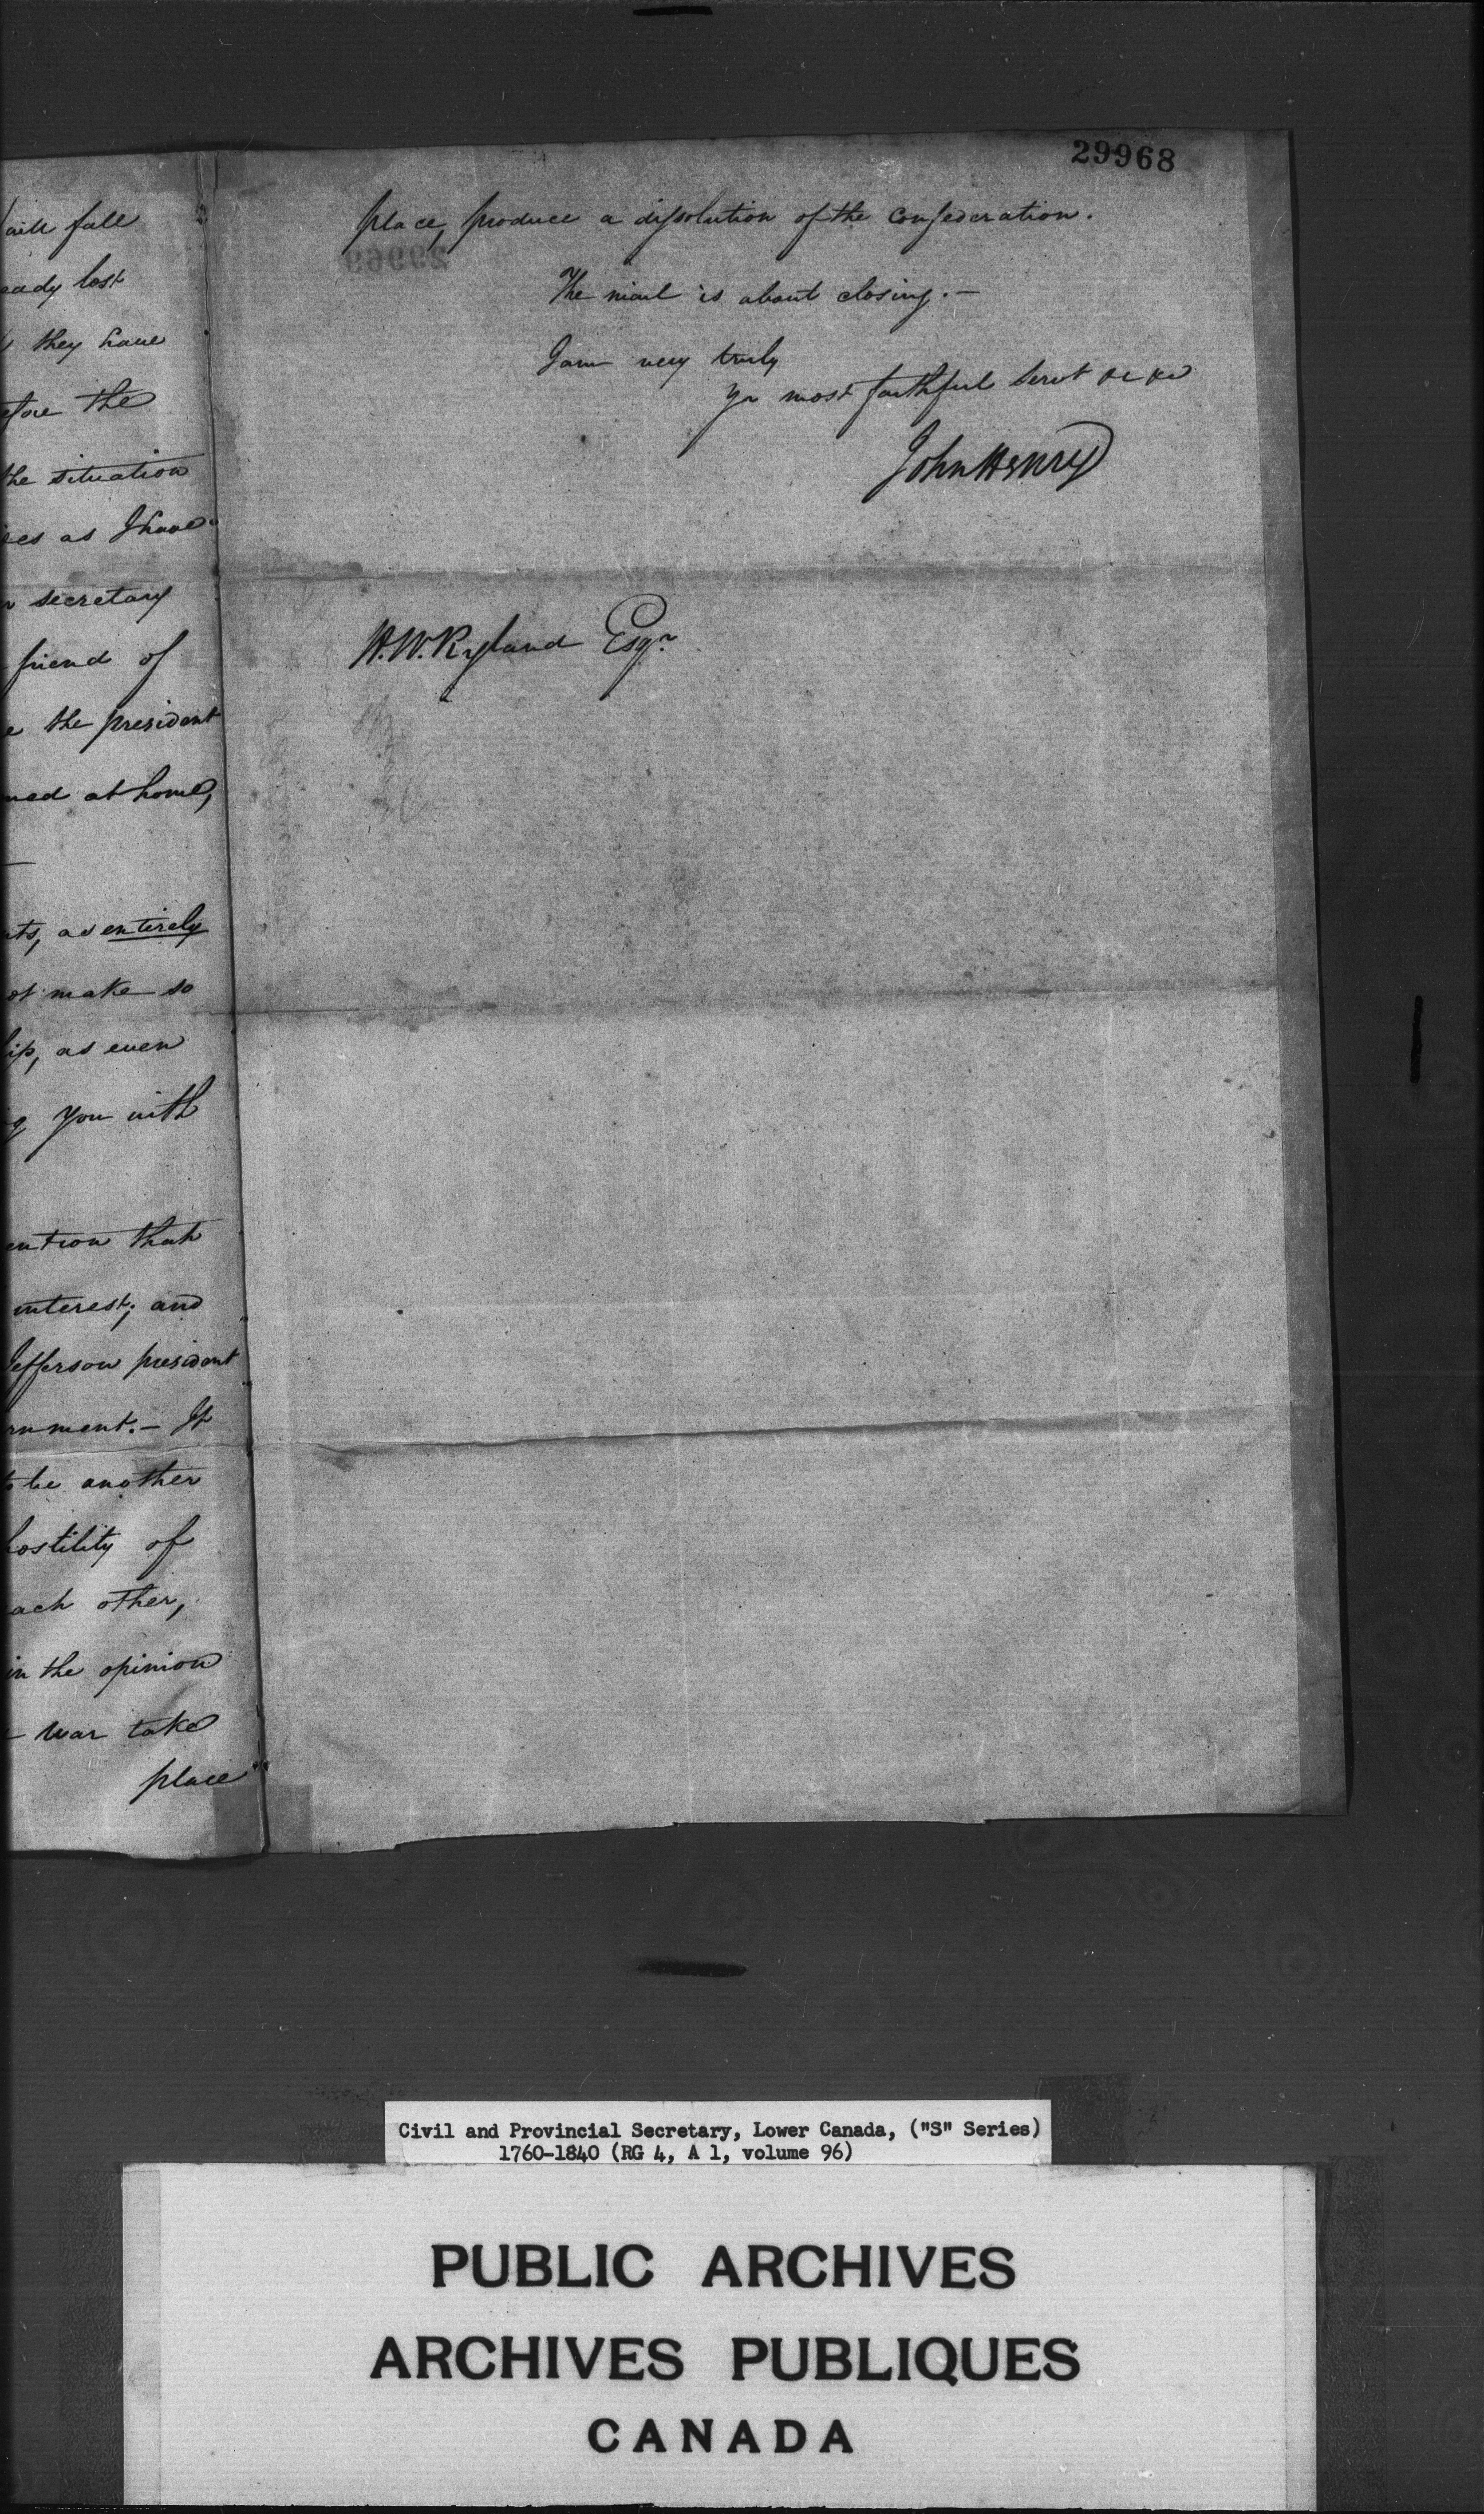 fall
lost
they have
the
the situation
as I have
secretary
friend of
the president
at home,
as entirely
make so
as even
you with
that
interest; and
Jefferson president
It
be another
hostility of
other,
in the opinion
war take
place
29968
place, produce a dissolution of the confederation.
The mail is about closing.—
I am very truly
yr most faithful Servt &c &c
John Henry
H.W. Ryland Esqr
Civil and Provincial Secretary, Lower Canada, ("S" Series)
1760-1840 (RG 4, A 1, volume 96)
PUBLIC ARCHIVES
ARCHIVES PUBLIQUES
CANADA